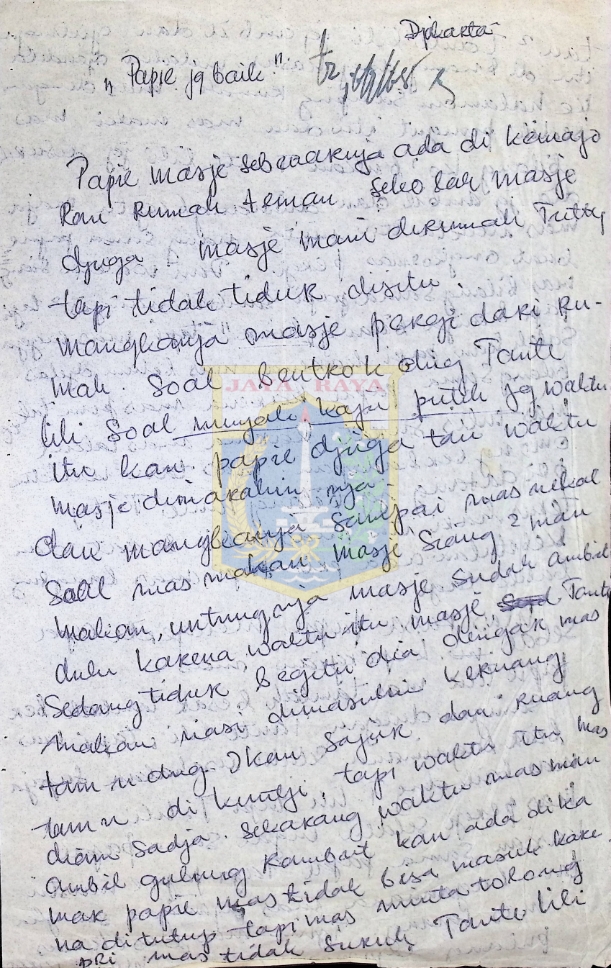 Djikarta
„ Papie jg baik!"
Papie masje sebenarnja ada di Kemajo
Ran Rumah teman sekolah masje
djuga masje main dirumah Tutty
tapi tidak tiduk disitu.
mangkanja masje pergi dari Ru-
mah. Soal bentrok dng Tante
lili Soal minjak kaju putih jg waktu
itu kan papie djuga tau waktu
masje dimarahin nja
dan mangkanja sampai mas nekat
Soal mas makan, masje Siang2 mau
makan, untungnja masje sudah ambil
dulu karena waktu itu masje Tante
Sedang tiduk begitu dia dengar mas
makan nasi dimasukin keruang
tamu dng Ikan Sajur dan ruang
tamu di kuntji, tapi waktu itu mas
diam Sadja. Sekarang waktu mas mau
ambil gunting Rambut kan ada dika
mar papie mas tidak bisa masuk kare
na ditutup tapi mas minta tolong
Dri mas tidak Suruh Tante lili
JAYA RAYA